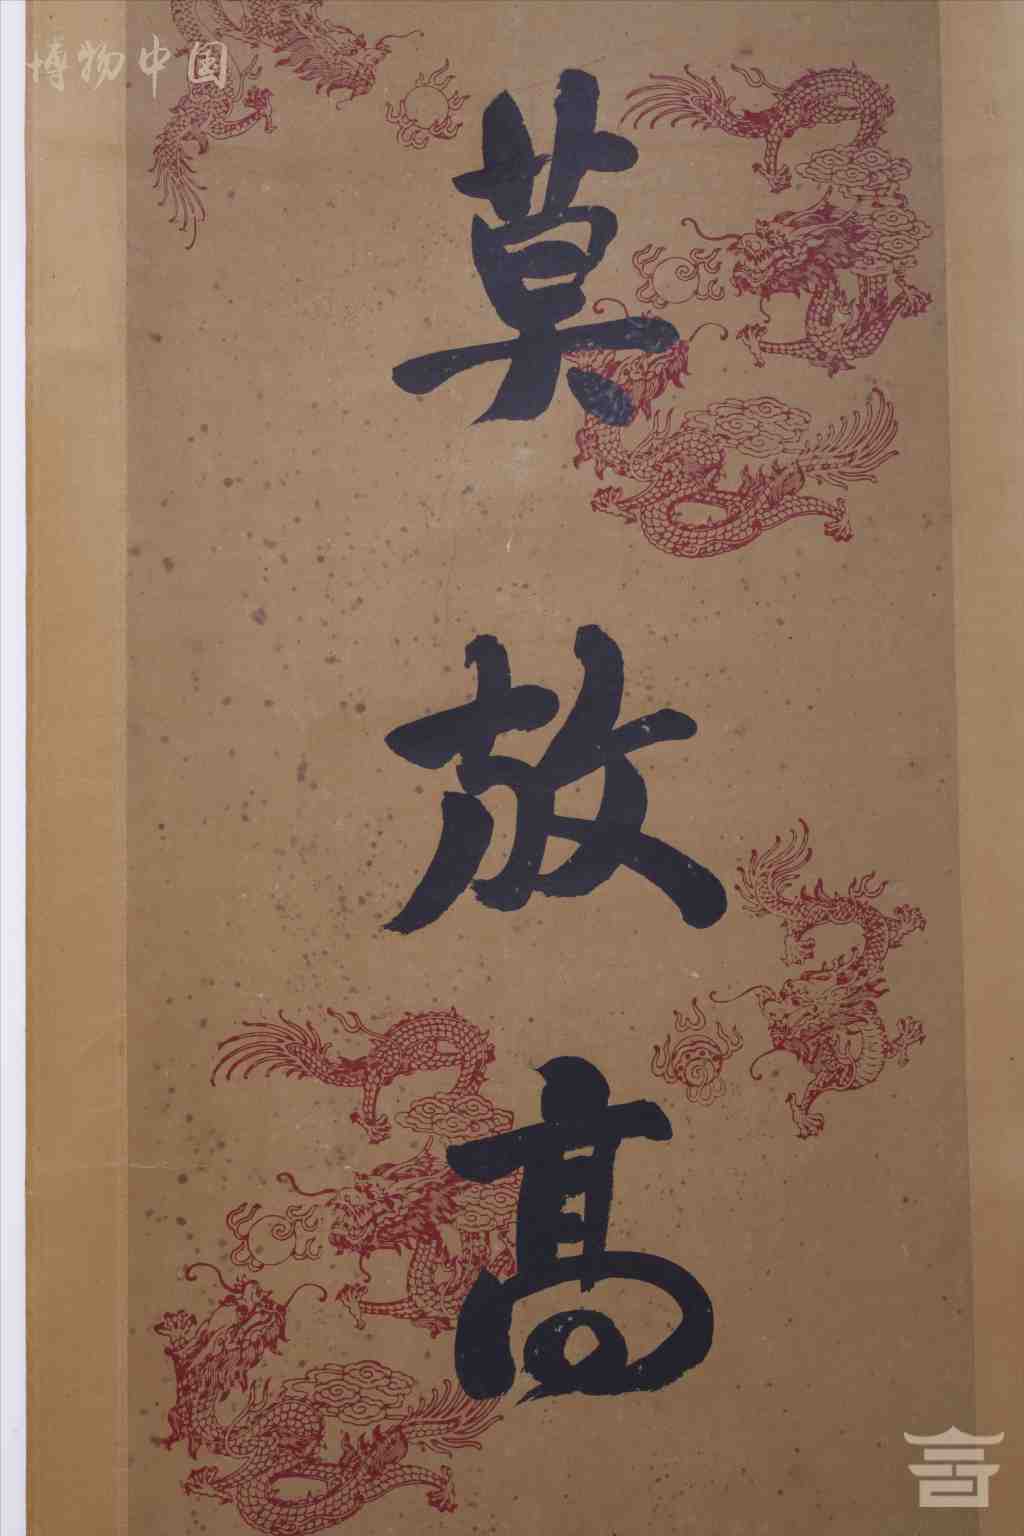 博物中国
莫放高